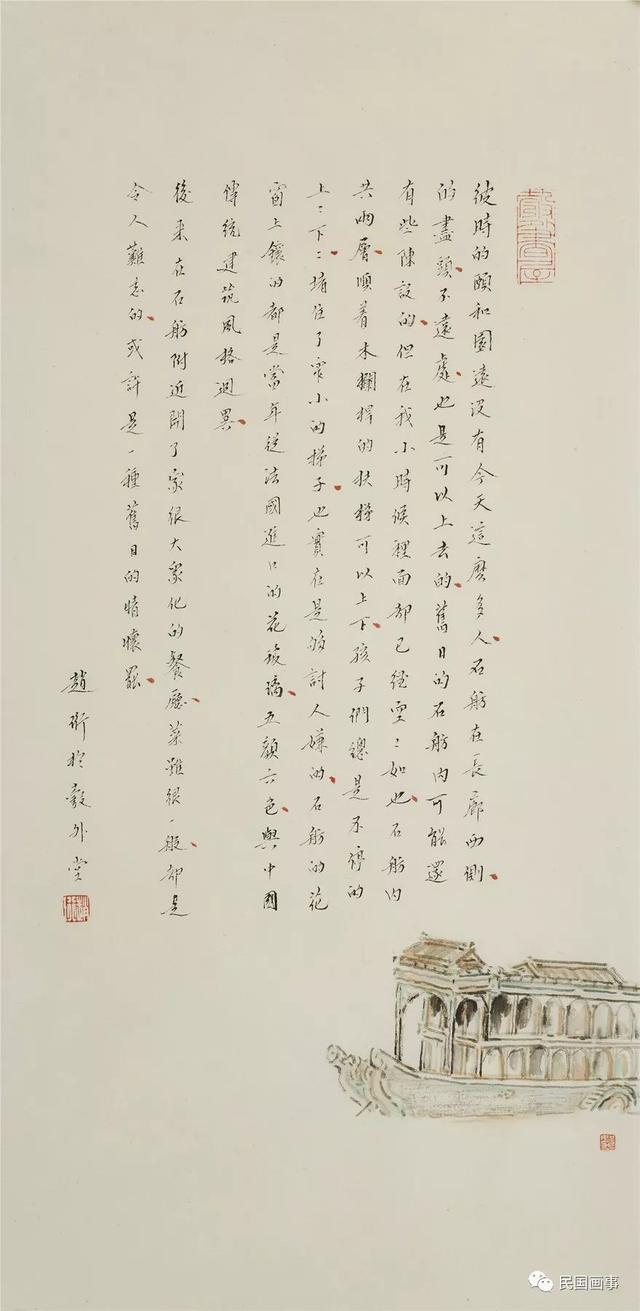 彼時的頤和園遠没有今天這麽多人石舫在長廊西側
的盡頭不遠處也是可以上去的舊日的石舫内可能還
有些陳設的但在我小時候裡面都已經空〻如也石舫内
共兩層順着木欄桿的扶梯可以上下孩子們總是不停的
上〻下〻堵住了窄小的梯子也實在是夠討人嫌的石舫的花
窗上鑲的都是當年從法國進口的花玻璃五顔六色與中國
傳統建筑風格迥異
後来在石舫附近開了家很大衆化的餐廳菜雖很一般都是
令人難忘的或許是一種舊日的情懷罷
趙珩於彀外堂
民国画事